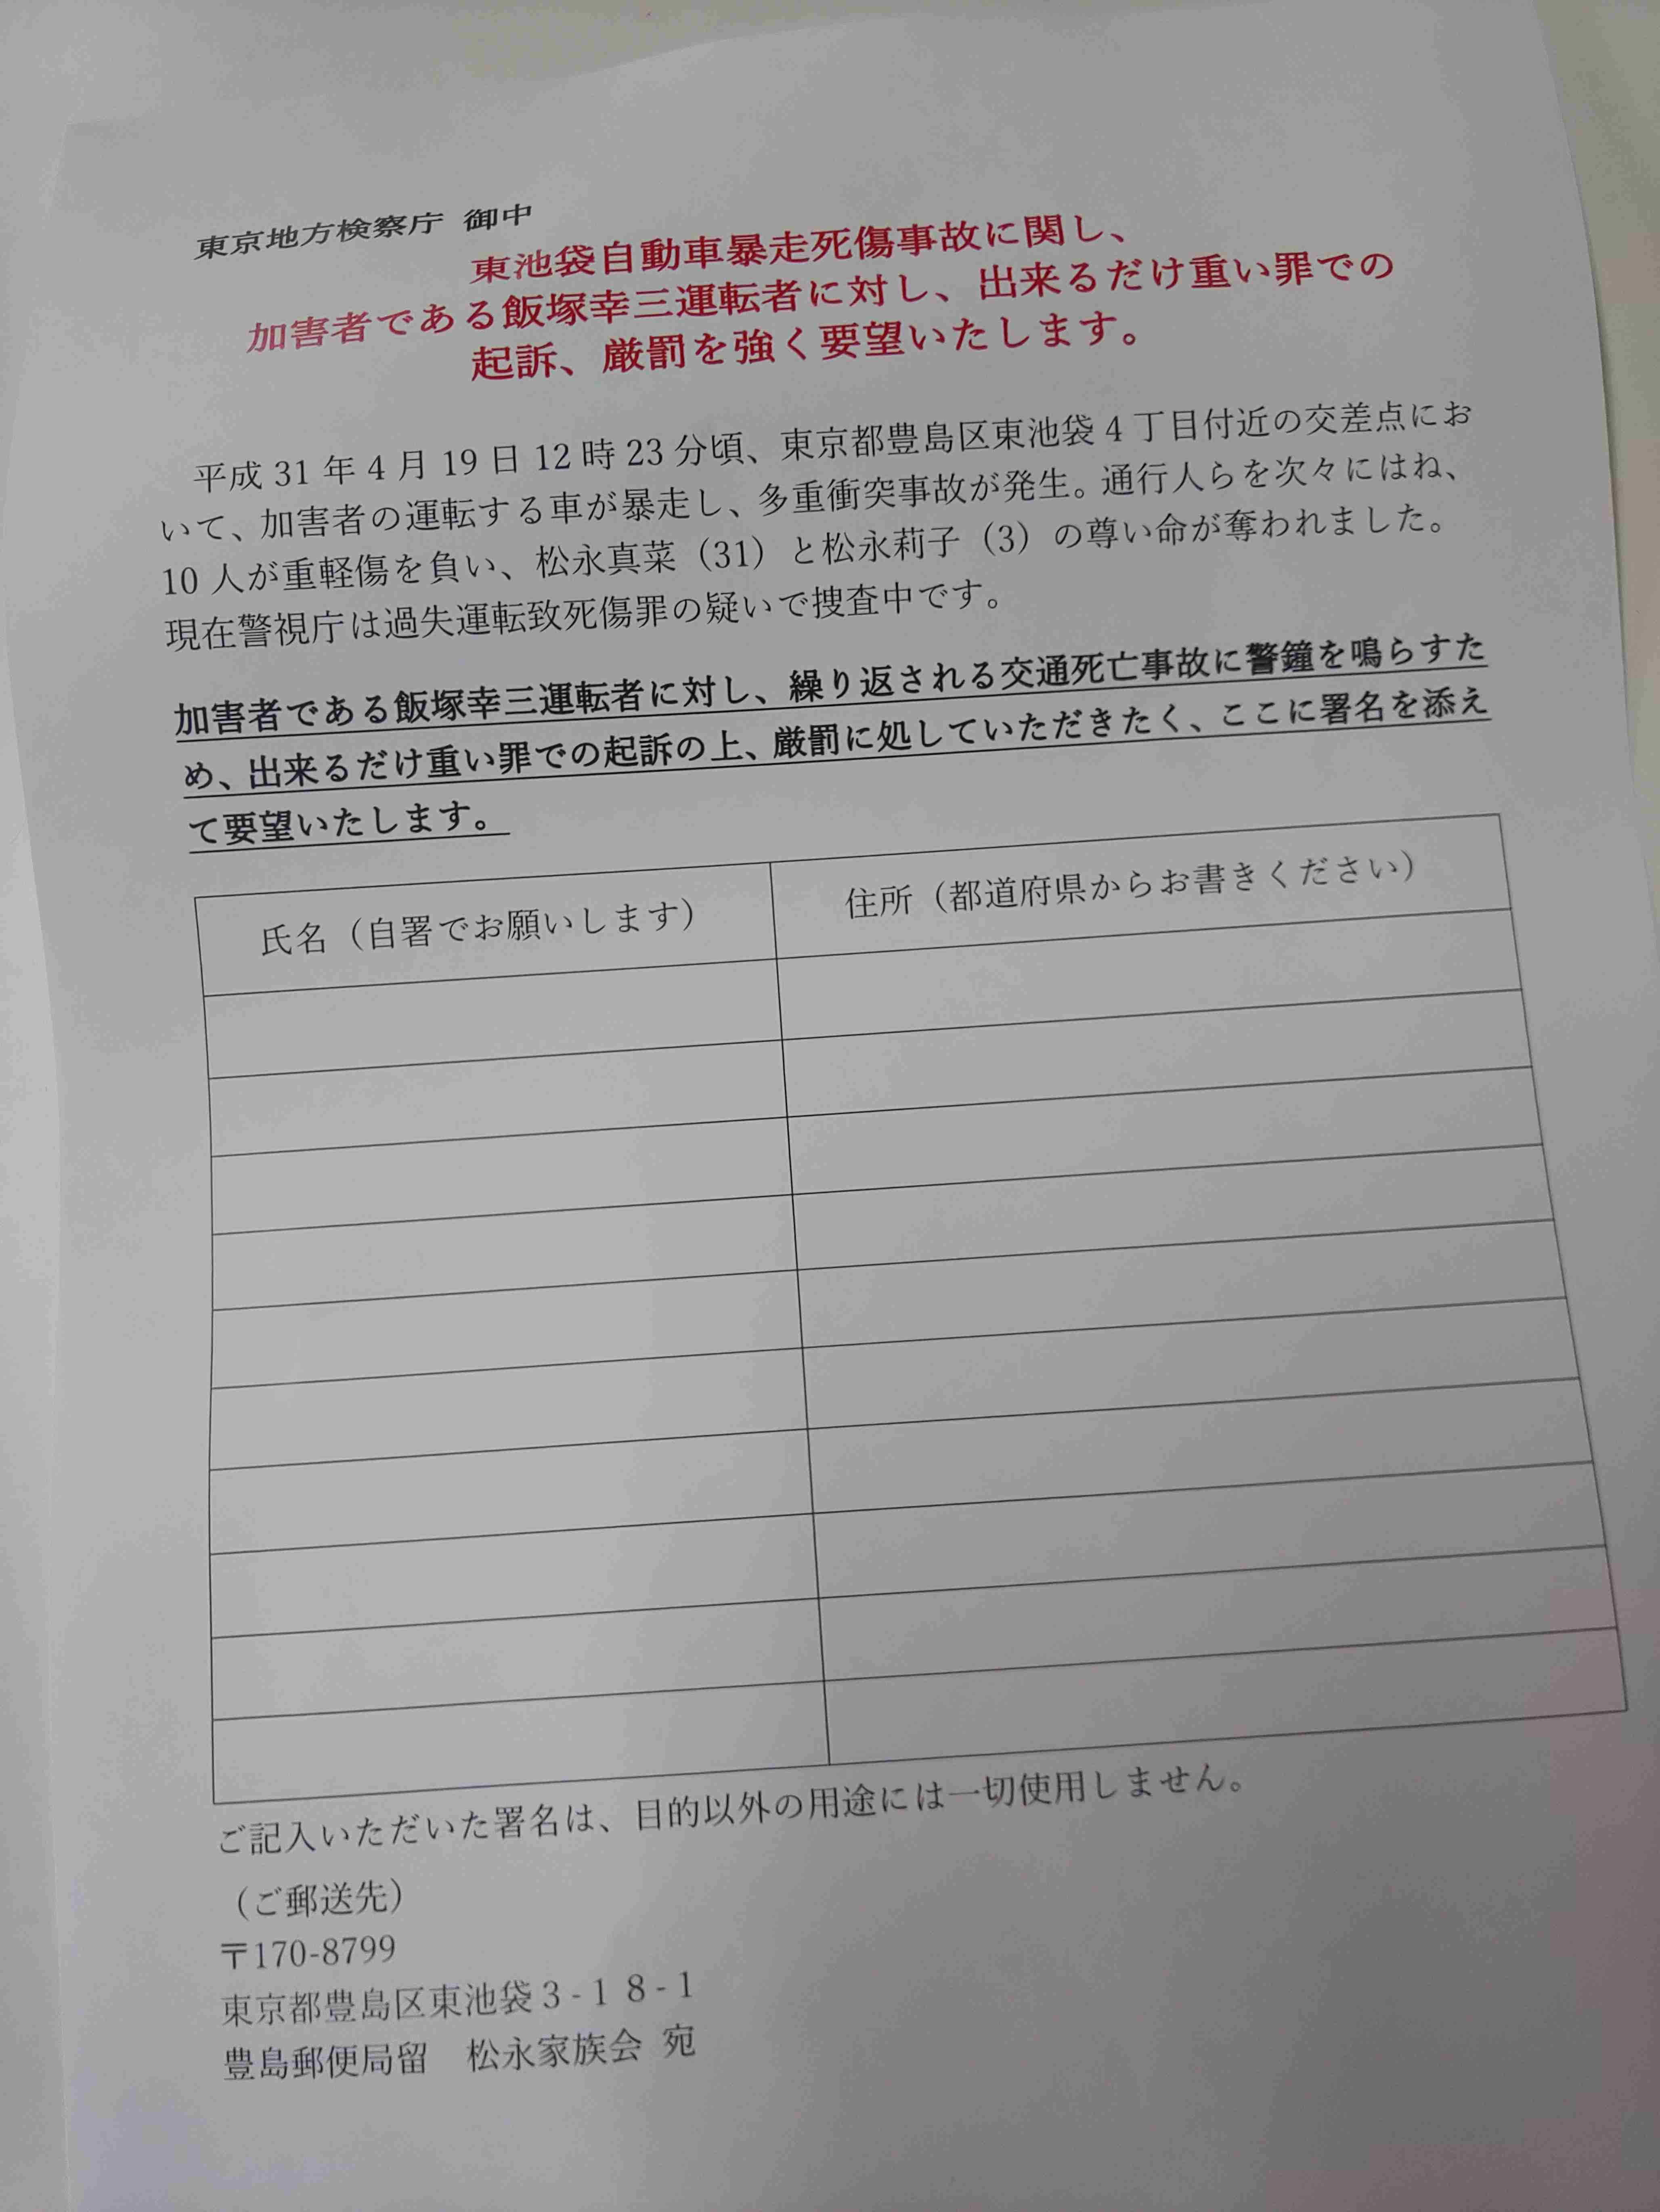 東京地方検察庁 御中
東池袋自動車暴走死傷事故に関し、
加害者である飯塚幸三運転者に対し、出来るだけ重い罪での
起訴、厳罰を強く要望いたします。
平成 31 年 4 月 19 日 12 時 23 分頃、東京都豊島区東池袋 4 丁目付近の交差点にお
いて、加害者の運転する車が暴走し、多重衝突事故が発生。通行人らを次々にはね、
10 人が重軽傷を負い、松永真菜（31）と松永莉子（3）の尊い命が奪われました。
現在警視庁は過失運転致死傷罪の疑いで捜査中です。
加害者である飯塚幸三運転者に対し、繰り返される交通死亡事故に警鐘を鳴らすた
め、出来るだけ重い罪での起訴の上、厳罰に処していただきたく、ここに署名を添え
て要望いたします。
氏名（自署でお願いします）
住所（都道府県からお書きください）
ご記入いただいた署名は、目的以外の用途には一切使用しません。
（ご郵送先）
〒170-8799
東京都豊島区東池袋３-１８-１
豊島郵便局留　松永家族会 宛